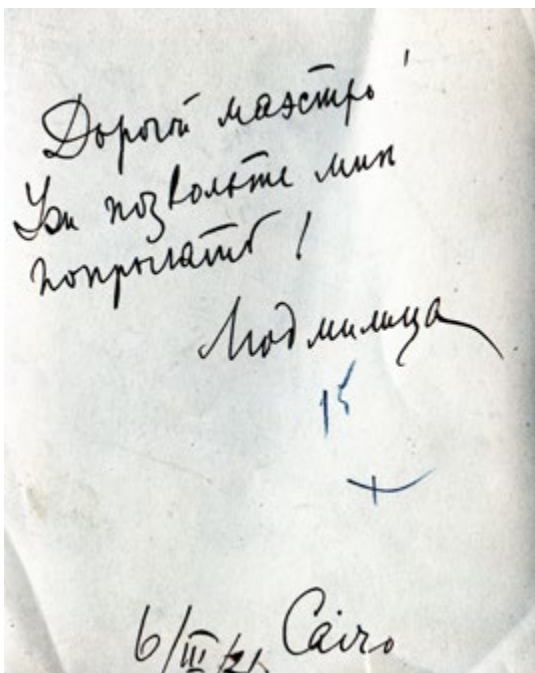 Дорогой маэстро!
позвольте мне
попрыгать!
Людмилица
15
6/III/21 Cairo